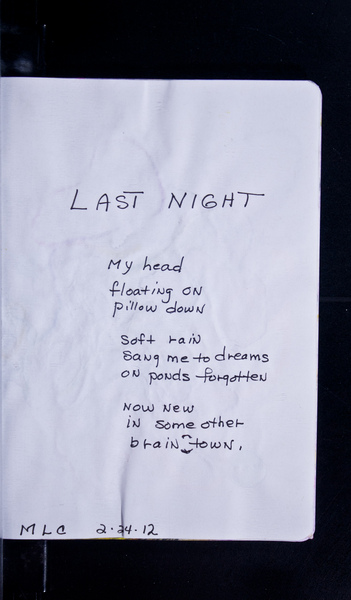 LAST NIGHT
My head
floating on
pillow down
Soft rain
sang me to dreams
on ponds forgotten
Now new
in some other
brain town.
MLC 2.24.12